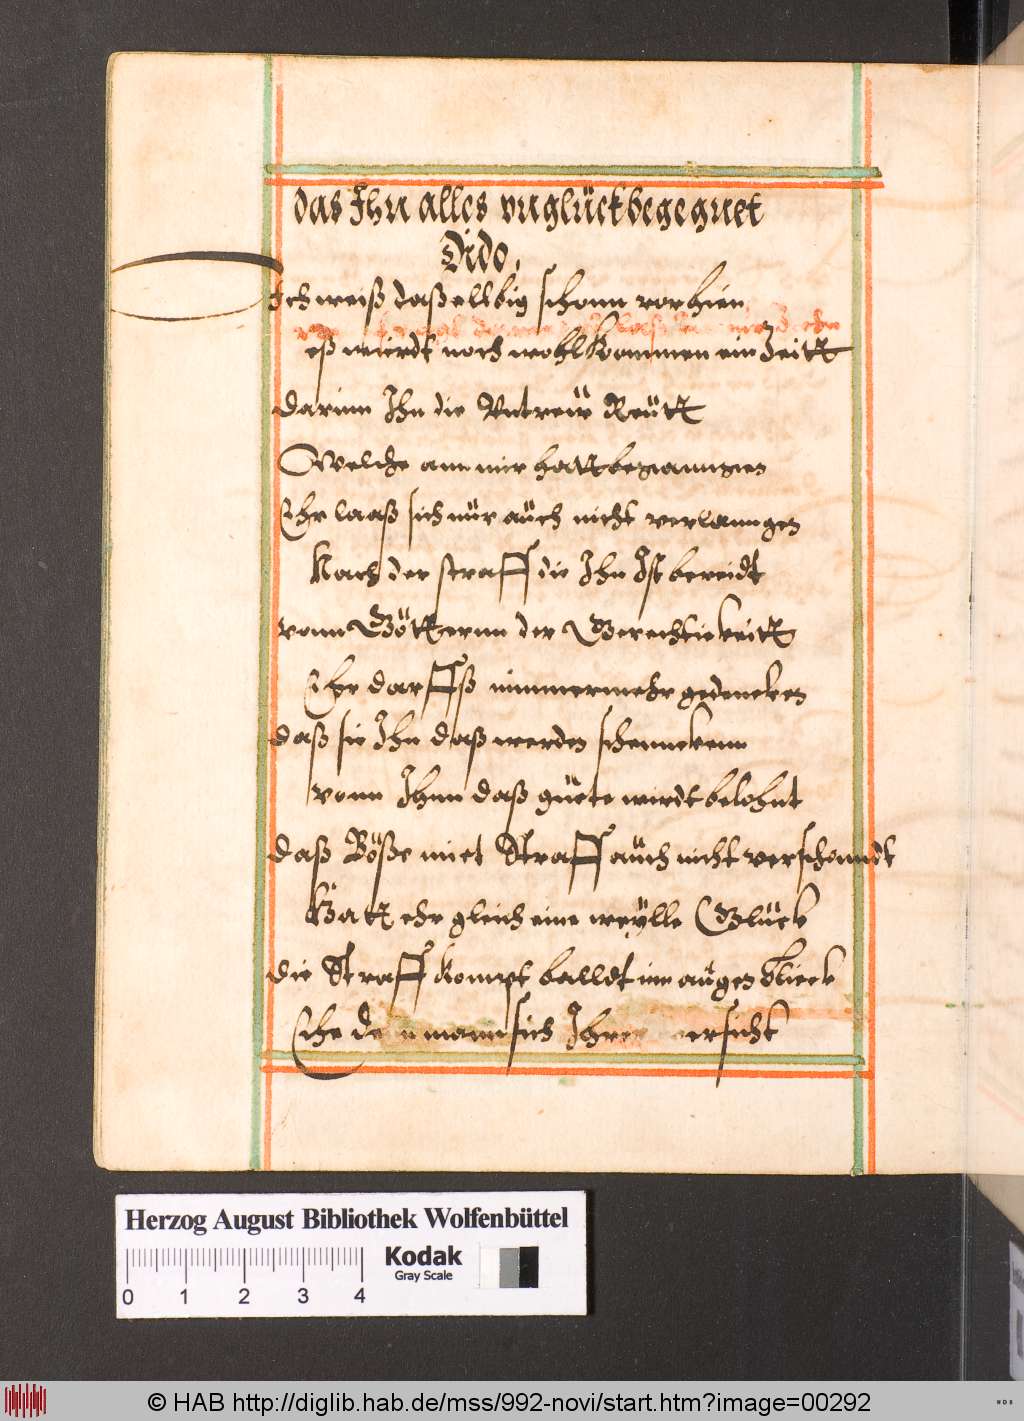 das Ihn alles vnglück begegnet
Dido,
Ich weiß daß ellbig schonn vorhien
eß würdt noch wohl kommen ein Zeitt
darinn Ihn die Vntreüw Reütt
Welche ann mir hatt begaunngen
Ehr laaß sich nür aüch nicht verlanngen
Nach der straff die Ihn Ist bereidt
vonn Götternn der Gerechtickeitt
Ehr darffß nimmermehr gedencken
daß sie Ihn daß werden schennckenn
vonn Ihnn daß güete wirdt belohnt
daß Böße miet Straff aüch nicht verschonndt
Hatt ehr gleich eine weÿlle Glück
die Straff kompt balldt im aügen blieck
Ehe mann sich Ihrer ersicht
Herzog August Bibliothek Wolfenbüttel
Kodak
Gray Scale
0 1 2 3 4
© HAB http://diglib.hab.de/mss/992-novi/start.htm?image=00292